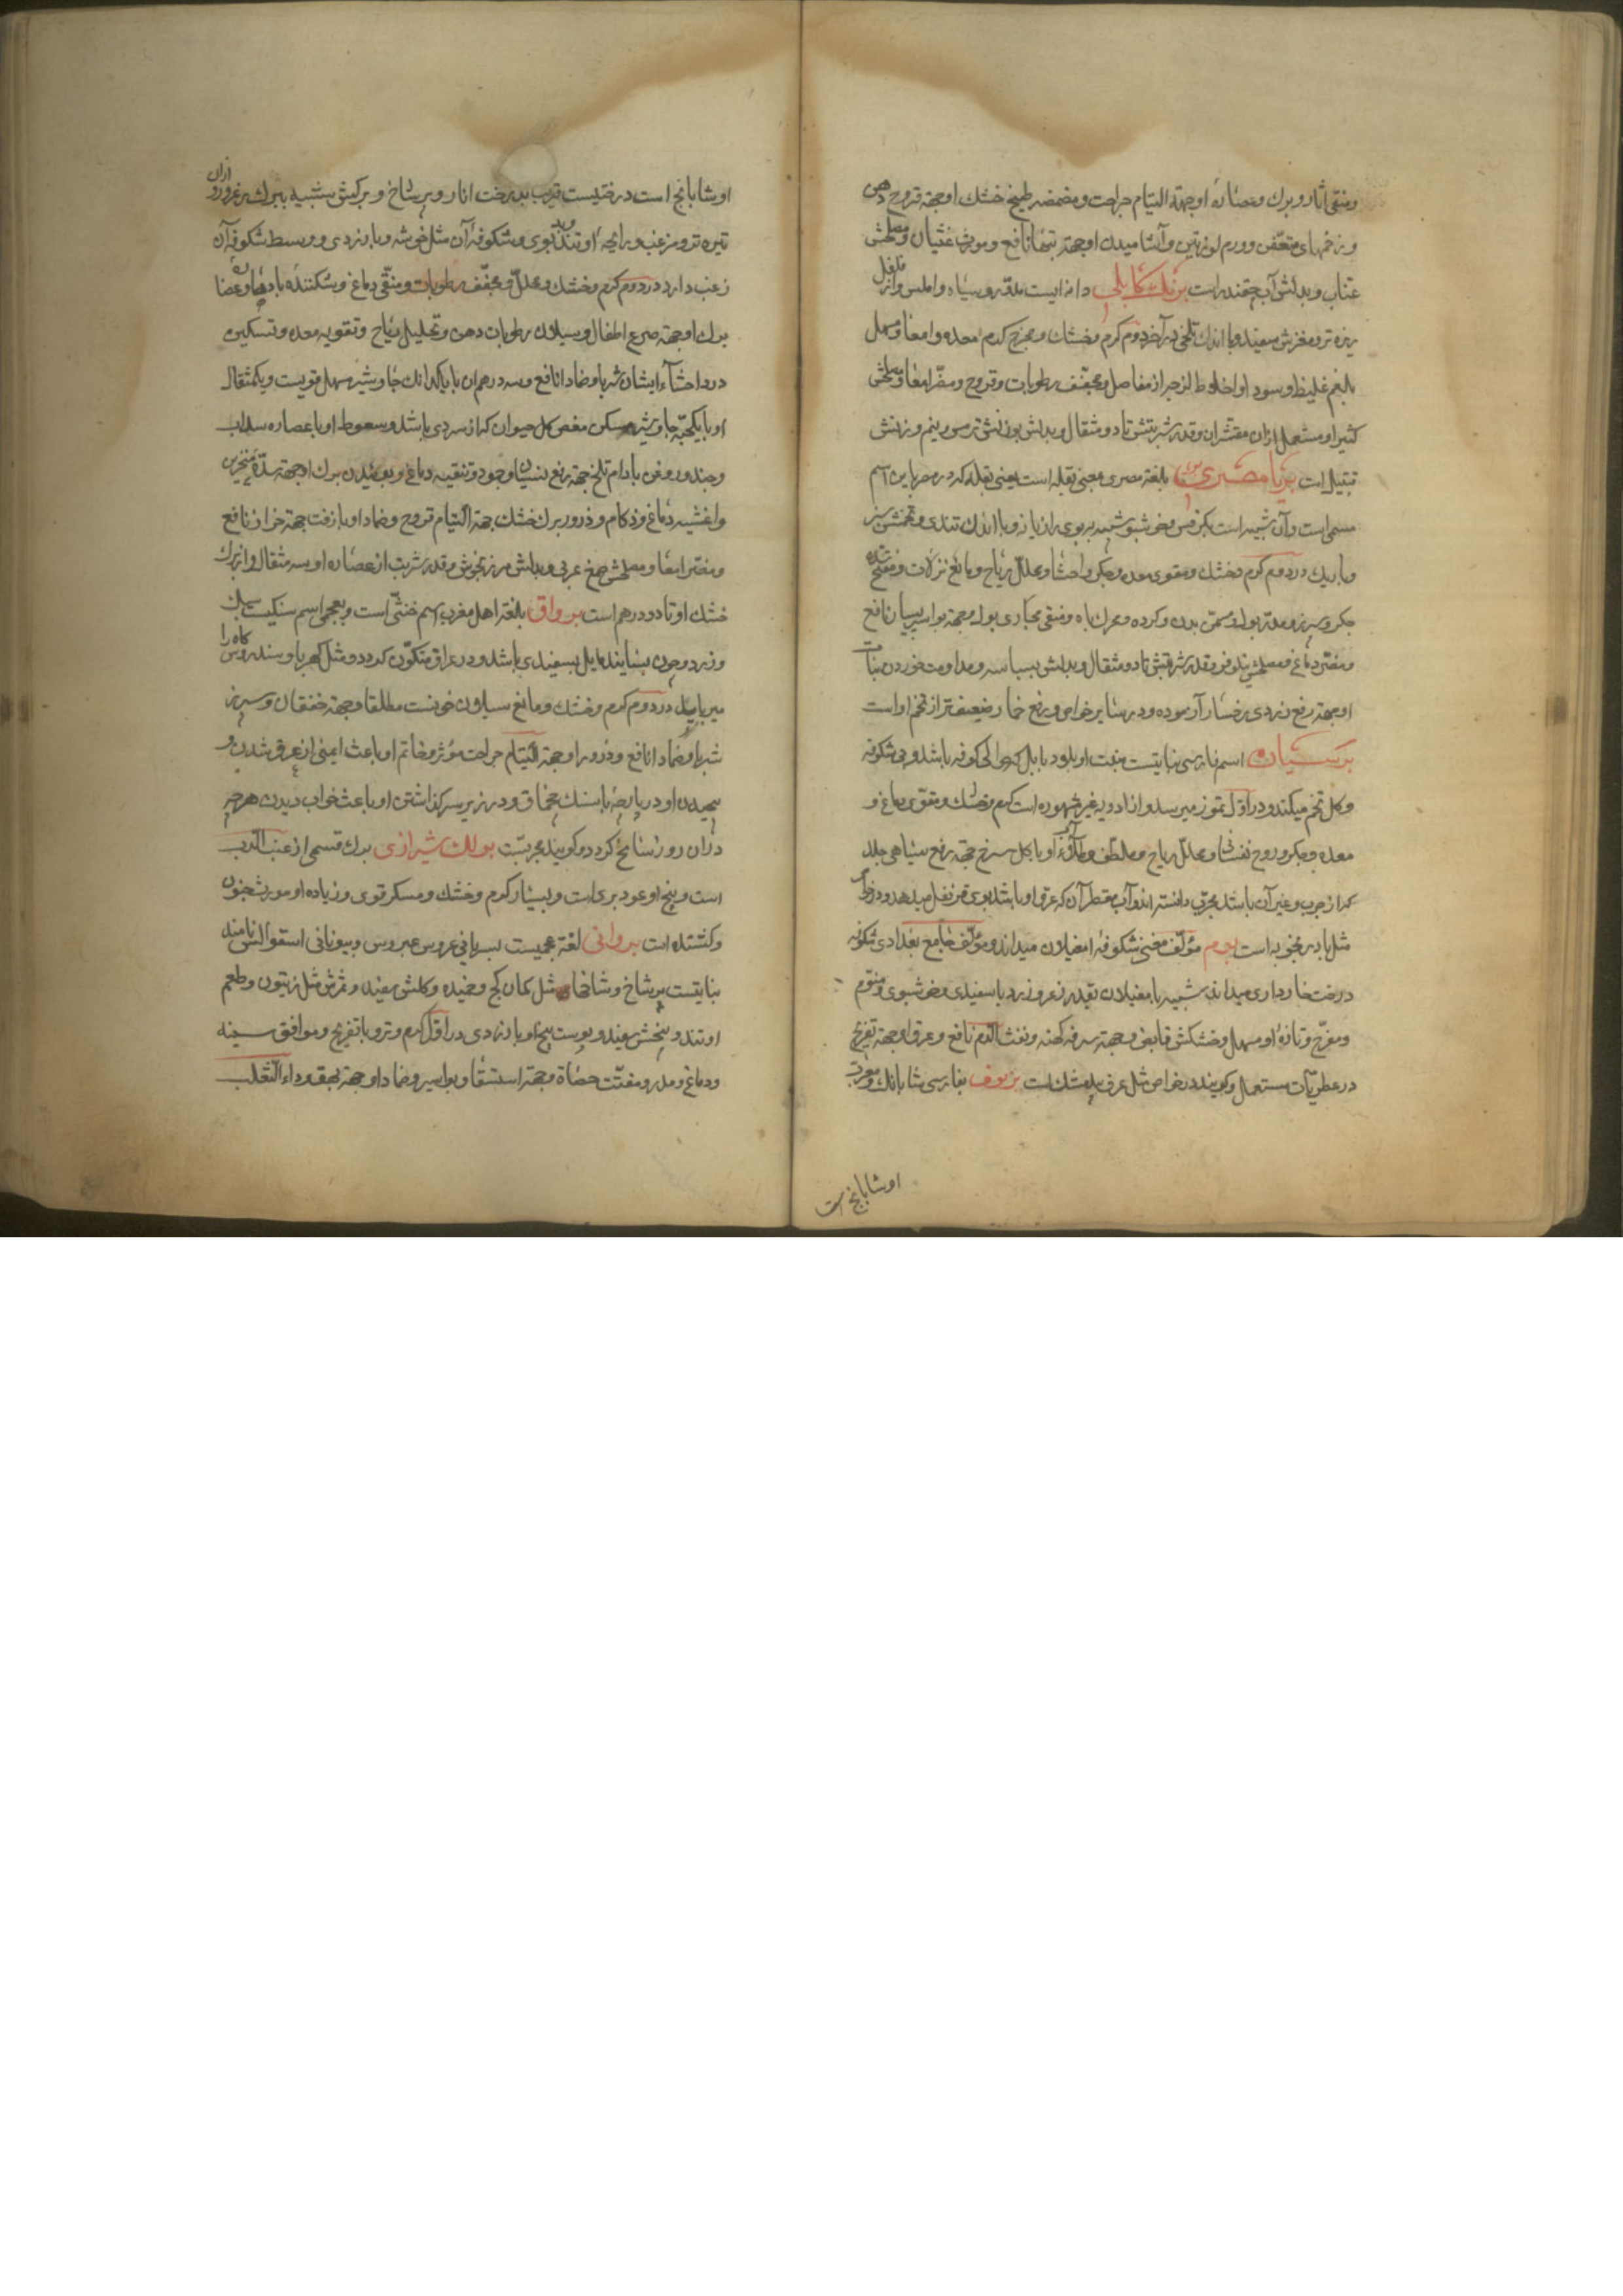 ومنقی آثار و برك و عصارهٔ او جهة التیام جراحت و مضمضه طبیخ خشك او جهة قروح دهن
و زخمهای متعفن و ورم لوزتین و آشامیدن او جهة تبها نافع و مورث غثیان و مصلحش
عناب و بدلش آب چقندر است برنك كابلی دانه ایست مدور و سیاه و املس و از فلفل
ریزه تر و مغزش سفید و با اندك تلخی در آخر دوم گرم و خشك و مخرج كرم معده و امعا و مسهل
بلغم غلیظ و سودا و اخلاط لزجه از مفاصل و مجفف رطوبات و قروح و مضر امعا و مصلحش
كثیرا و مستعمل ازان مقشر آن و قدر شربتش تا دو مثقال و بدلش بوزنش ترمس و نیم وزنش
قنبیل است برنا مصری بلغة مصری بمعنی بقله است یعنی بقله كه در مصر باین اسم
مسمی است و آن شبیه است بكرفس و خوشبو شبیه ببوی رازیانه و با اندك تندی و تخمش سبز
و باریك در دوم گرم و خشك و مقوی معده و جگر و احشا و محلل ریاح و مانع نزلات و مفتح سده
جگر و سپرز و مدر بول و مسمن بدن و گرده و محرك باه و منقی مجاری بول و جهة بواسیر بسیار نافع
و مضر دماغ و مصلحش نیلوفر و قدر شربتش تا دو مثقال و بدلش بسباسه و مداومت خوردن نبات
او جهة رفع زردی رخسار آزموده و در سایر خواص و رفع خمار ضعیفتر از تخم او است
برسیان اسم فارسی نباتیست منبت او بلاد بابل و حوالی كوفه باشد و بی شكوفه
و گل تخم میكند و در اول تموز میرسد و از ادویه غیر مشهوره است گرم و خشك و مقوی دماغ و
معده و جگر و روح نفسانی و محلل ریاح و ملطف و طلاء او با گل سرخ جهة رفع سیاهی جلد
كه از جرب و غیر آن باشد مجرب دانسته اند و آب مقطر آن كه عرق او باشد بوی قرنفل میدهد و در خواص
مثل بادرنجبویه است برم مؤلف مغنی شكوفهٔ ام غیلان میداند و مؤلف جامع بغدادی شكوفه
درخت خارداری میداند شبیه بام غیلان بقدر زعرور زرد با سفیدی و خوشبوی و منوم
و مفرح و تازهٔ او مسهل و خشكش قابض و جهة سرفه كهنه و نفث الدم نافع و عرق او جهة تفریح
در عطریات مستعمل و كویند در خواص مثل عرق بیدمشك است برنوف بفارسی شابانك و معرب
او شابانج است
او شابانج است درختیست قریب بدرخت انار و پر شاخ و برگش شبیه ببرك زعرور و ازان
تیره تر و مزغب و رایحهٔ او تند و بد بوی و شكوفهٔ آن مثل خوشه و با زردی و وسط شكوفه آن
زغب دارد در دوم گرم و خشك و محلل و مجفف رطوبات و منقی دماغ و شكننده بادها و عصاره
برك او جهة صرع اطفال و سیلان رطوبات دهن و تحلیل ریاح و تقویه معده و تسكین
درد احشآء ایشان شربا و ضمادا نافع و سه درهم آن با یكدانك جاوشیر مسهل قویست و یكمثقال
او با یكحبه جاوشیر مسكن مغص كل حیوان كه از سردی باشد و سعوط او با عصاره سداب
و جند و روغن بادام تلخ جهة رفع نسیان و جمود و تنقیه دماغ و بوئیدن برك او جهة سدهٔ منخرین
و اغشیه دماغ و زكام و ذرور برك خشك جهة التیام قروح و ضماد او با زفت جهة خراز نافع
و مضر امعا و مصلحش صمغ عربی و بدلش مرزنجوش و قدر شربت از عصاره او سه مثقال و از برك
خشك او تا دو درهم است برواق بلغة اهل مغرب اسم خنثی است و بعجمی اسم سنگیست سبك
و زرد و چون بسایند مایل بسفیدی باشد و در عراق متكون گردد و مثل كهربا و سندروس كاه را
میرباید در دوم گرم و خشك و مانع سیلان خونست مطلقا و جهة خفقان و سپرز
شربا و ضمادا نافع و ذرور او جهة التیام جراحت مؤثر و خاتم او باعث ایمنی از غرق شدن و
پیچیدن او در پارچه با سنك چخماق و در زیر سر گذاشتن او باعث خواب دیدن هر چه
دران روز سانح گردد و گویند مجربست بولك شیرازی برك قسمی از عنب الدب
است و بیخ او عود بری است و بسیار گرم و خشك و مسكر قوی و زیاده او مورث جنون
و كشنده است بروانی لغة عجمیست بسریانی عروس عبروس و بیونانی استقوالس نامند
نباتیست پر شاخ و شاخها مثل كمان كج و خمیده و گلش سفید و ثمرش مثل زیتون و طعم
او تند و بیخش سفید و پوست بیخ او با زردی در اول گرم و تر و با تفریح و موافق سینه
و دماغ و مدر و مفتت حصاة و جهة استسقا و بواسیر و ضماد او جهة بهق و داء الثعلب